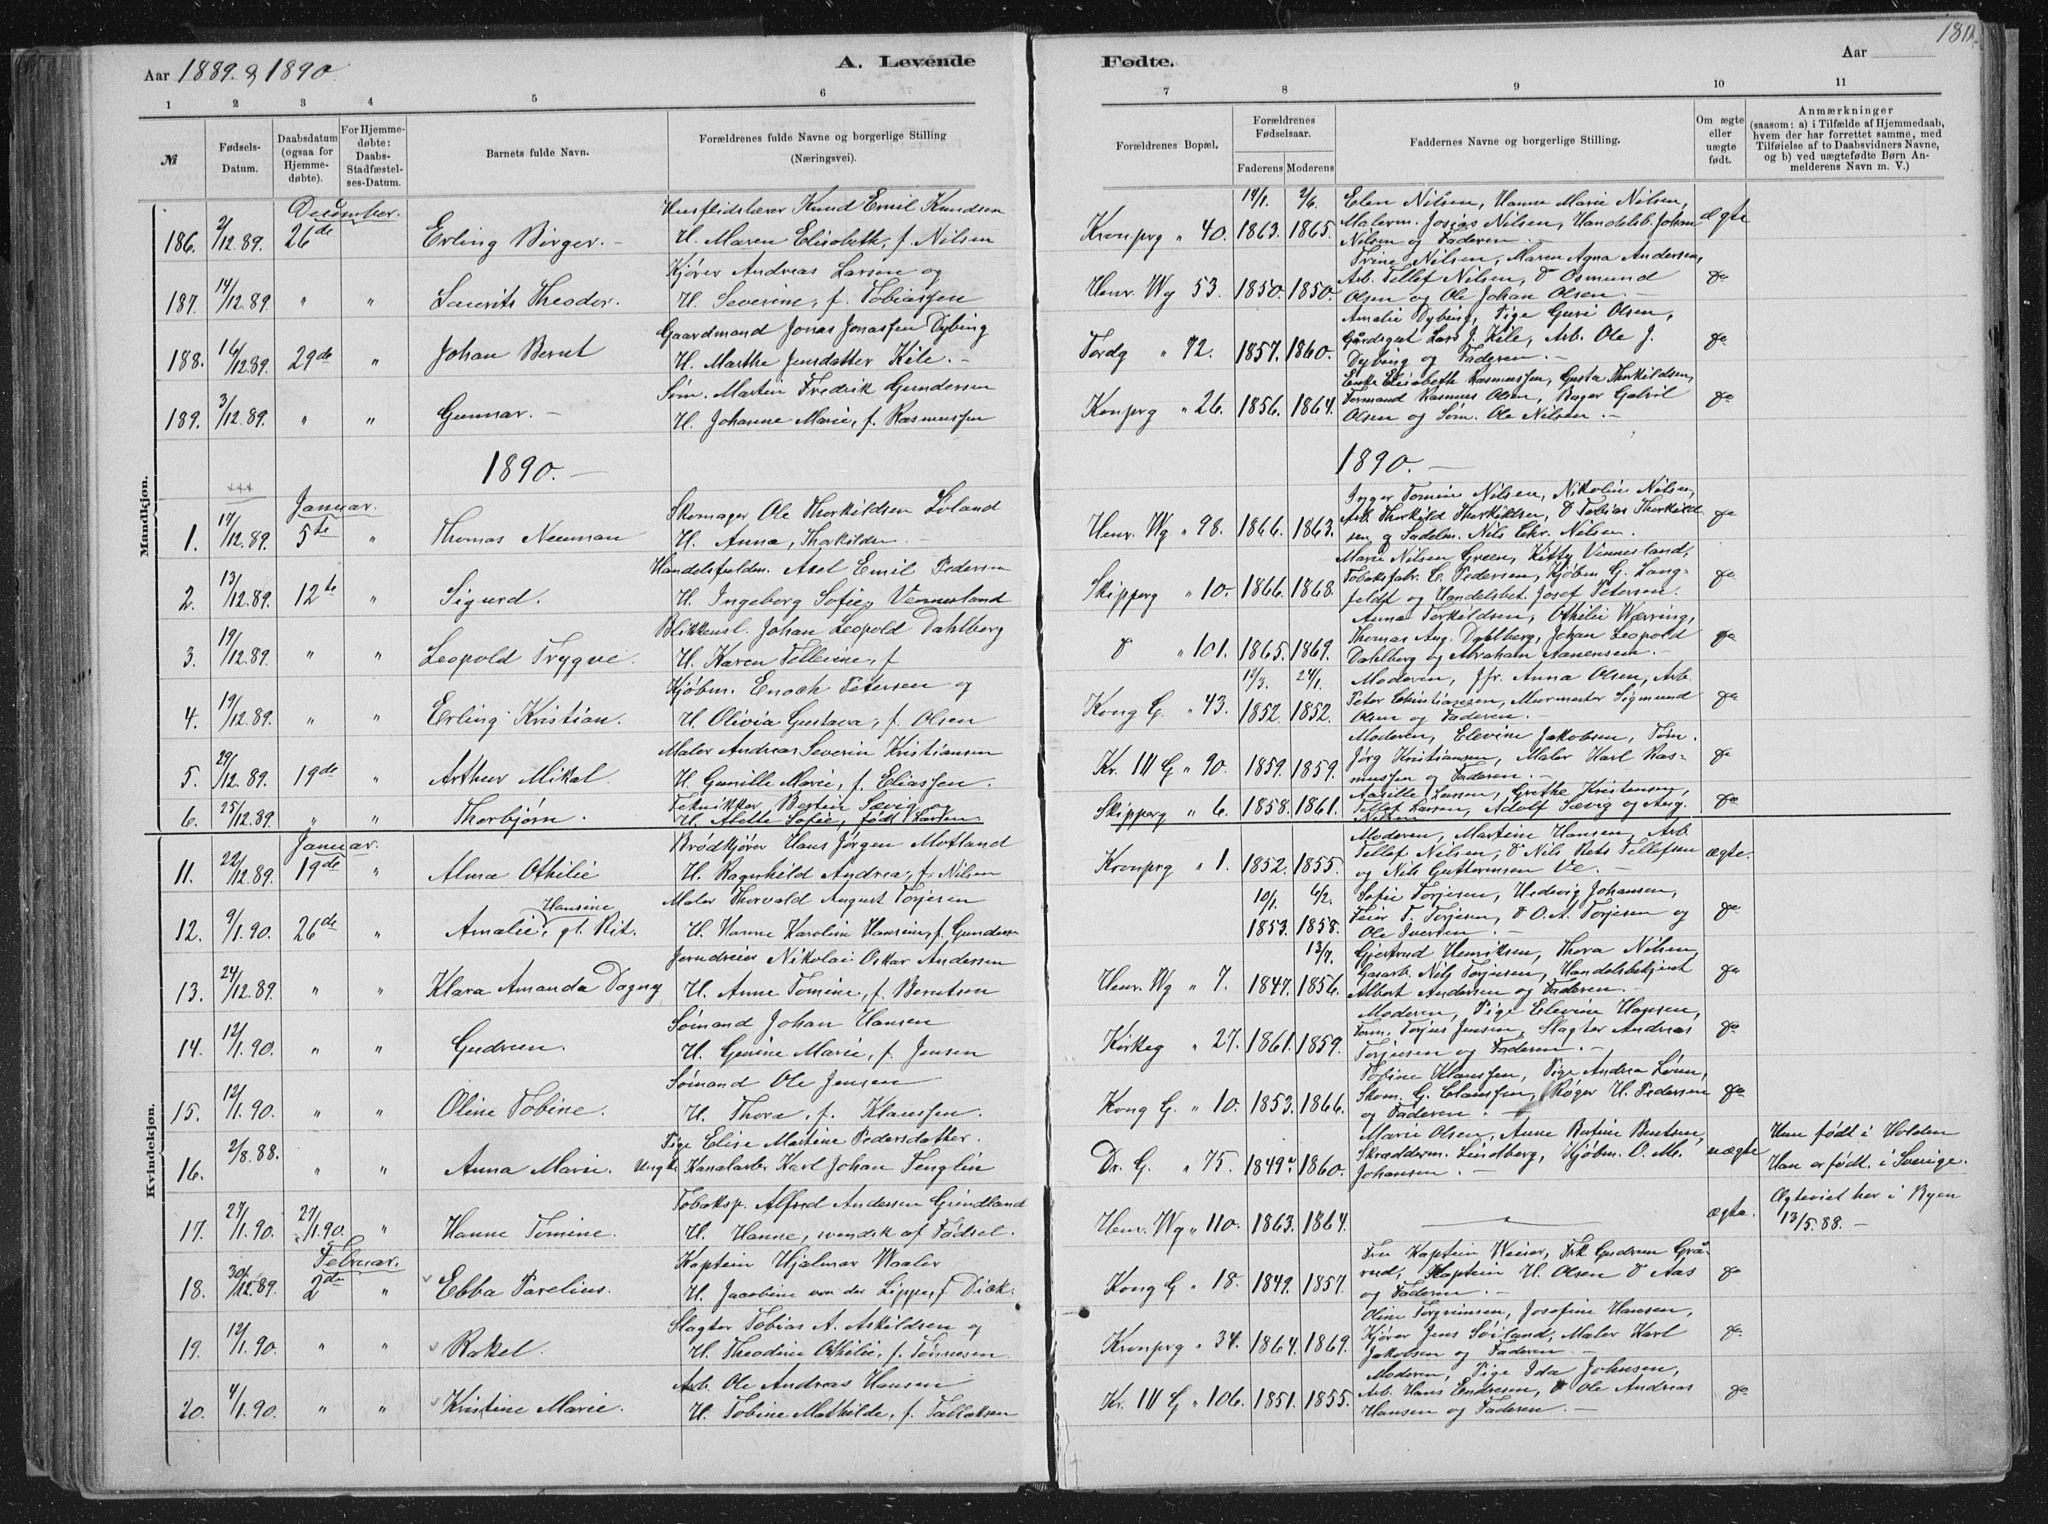 180.
Aar 1889 & 1890
A. Levende Fødte.
Aar
1 2 3 4 5 6 7 8 9 10 11
№
Fødsels-Datum.
Daabsdatum (ogsaa for Hjemme-døbte).
For Hjemme-døbte: Daabs-Stadfæstel-ses-Datum.
Barnets fulde Navn.
Forældrenes fulde Navne og borgerlige Stilling (Næringsvei).
Forældrenes Bopæl.
Forældrenes Fødselsaar.
Faderens Moderens
Faddernes Navne og borgerlige Stilling.
Om ægte eller uægte født.
Anmærkninger (saasom: a) i Tilfælde af Hjemmedaab, hvem der har forrettet samme, med Tilføielse af to Daabsvidners Navne, og b) ved uægtefødte Børn An-melderens Navn m. V.)
Mandkjøn.
December.
Husflidslærer Knud Emil Knudsen 14/1. 2/6. Elen Nilsen, Hanne Marie Nilsen,
186. 2/12.89. 26de Erling Birger. H. Maren Elisabeth, f. Nilsen Kronprg " 40. 1863. 1865. Malerm. Josias Nilsen, Handelsb. Johan Nilsen og Faderen. ægte
Kjører Andreas Larsen og Trine Nilsen, Maren Agna Andersen,
187. 14/12.89. " " Laurits Theodor. H. Severine, f. Tobiassen Henr. Wg 53. 1850. 1850. Arb. Tellef Nilsen, D Osmund Olsen og Ole Johan Olsen do
Gaardmand Jonas Jonassen Dybing Amalie Dybing, Pige Guri Olsen,
188. 16/12.89. 29de " Johan Bernt H. Marthe Jensdatter Kile. Tordg " 72. 1857. 1860. Gårdsgut Lars J. Kile, Arb. Ole J. Dybing og Faderen. do
Søm. Martin Fredrik Gundersen Enke Elisabeth Rasmussen, Gusta Thorkildsen,
189. 3/12.89. " " Gunnar. H. Johanne Marie, f. Rasmussen Konprg " 26. 1856. 1864. Formand Rasmus Olsen, Bager Gabril Olsen og Søm. Ole Nilsen. do
1890. 1890.
Januar.
Skomager Ole Thorkildsen Loland Inger Tomine Nilsen, Nikoline Nilsen,
1. 17/12.89. 5te " Thomas Neuman H. Anna, Thorkildsen. Henr. Wg " 98. 1866. 1863. Arb. Thorkild Thorkildsen, D Tobias Thorkildsen og Sadelm. Nils Chr. Nilsen. do
Handelsfuldm. Axel Emil Pedersen Marie Nilsen Green, Kitty Vennesland,
2. 13/12.89. 12te " Sigurd. H. Ingeborg Sofie, Vennesland Skipperg " 10. 1866. 1868. Tobaksfabr. C. Pedersen, Kjøbm. G. Langfeldt og Handelsbet. Josef Petersen. do
Blikkensl. Johan Leopold Dahlberg Anna Torkildsen, Othilie Wæring,
3. 19/12.89. " " Leopold Trygve. H. Karen Tellevine, f D " 101. 1865. 1869. Thomas Aug. Dahlberg, Johan Leopold Dahlberg og Abraham Aanensen. do
Kjøbm. Enoch Petersen og 19/3. 24/1. Moderen, Jfr. Anna Olsen, Arb.
4. 19/12.89. " " Erling Kristian. H. Olivia Gustava, f. Olsen Kong G. " 43. 1852. 1852. Peter Christiansen, Murmester Sigmund Olsen og Faderen. do
Maler Andreas Severin Kristiansen Moderen, Elevine Jakobsen, Tøm.
5. 29/12.89. 19de " Arthur Mikal H. Gunille Marie, f. Eliassen. Kr. III G " 90. 1859. 1859. Jörg Kristiansen, Maler Karl Rasmussen og Faderen. do
Tekniker Bertin Sævig og Aasille Larsen, Grethe Kristensen,
6. 25/12.89. " " Thorbjørn. H. Alette Sofie, født Larsen Skipperg " 6. 1858. 1861. Tellef Larsen, Adolf Sævig og Aug. Nilsen do
Kvindekjøn.
Januar.
Brødkjører Hans Jörgen Motland Moderen, Martine Hansen, Arb.
11. 22/12.89. 19de " Alma Othilie H. Ragnhild Andrea, f. Nilsen Kronprg " 1. 1852. 1855. Tellef Nilsen, D Nils Bets Tellefsen og Nils Guttormsen Ve. ægte.
Maler Thorvald August Torjesen 10/1. 6/2. Sofie Torjesen, Hedevig Johansen,
12. 9/1.90. 26de " Amalie Hansine, gl. Rit. H. Hanne Karoline Hansine, f. Gunders 1853. 1858. Feier T. Torjesen, D O. A. Torjesen og Ole Iversen. do
Jerndreier Nikolai Oskar Andersen 13/7. Gjertrud Henriksen, Thora Nilsen,
13. 24/12.89. " " Klara Amanda Dagny H. Anne Tomine, f. Berntsen Henr. Wg " 7. 1847. 1856. Gasarb. Nils Torjusen, Handelsbetjent Albert Andersen og Faderen. do
Sømand Johan Hansen Moderen, Pige Elevine Hansen,
14. 12/1.90. " " Gudrun. H. Gunine Marie, f. Jensen Kirkeg " 27. 1861. 1859. Tøm. Torjus Jensen, Slagter Andreas Torjusen og Faderen. do
Sømand Ole Jensen Tobine Klaussen, Pige Andrea Lönn,
15. 12/1.90. " " Oline Tobine. H. Thora, f. Klaussen. Kong G. " 10. 1853. 1866. Skom. G. Claussen, Røger H. Pedersen og Faderen. do
Pige Elise Martine Pedersdatter. Marie Olsen, Anne Bertine Bentsen, Hun født i Holden
16. 2/8.88. " " Anna Marie. Ungk. Kanalarb. Karl Johan Tenglin Dr. G. " 75. 1849. 1860. Skrædderm. Lindberg, Kjøbm. O. M. Johansen. uægte Han er født i Sverige.
Tobaksp. Alfred Andersen Grindland Ægteviet her i Byen
17. 27/1.90. 27/1.90. " Hanne Tomine. H. Hanne, svensk af Fødsel. Henr. Wg " 110. 1863. 1864. ægte. 13/5.88.
Februar.
Kaptein Hjalmar Waaler Fru Kaptein Weier, Frk Gudrun Grå-
18. 30/12.89. 2den " Ebba Parelius. H. Jacobine von der Lippe, f. Dick. Kong G " 18. 1849. 1857. rud, Kaptein H. Olsen D Aas og Faderen. do
Slagter Tobias A. Askildsen og Oline Torgrimsen, Josefine Hansen,
19. 12/1.90. " " Rakel. H. Theodine Othilie, f. Tønnesen Kronprg " 34. 1864. 1869. Kjører Jens Söiland, Maler Karl Jakobsen og Faderen. do
Arb. Ole Andreas Hansen Moderen, Pige Ida Johnsen,
20. 4/1.90. " " Kristine Marie. H. Tobine Mathilde, f. Tallaksen Kr. III G " 106. 1851. 1855. Arb. Hans Endresen, D Ole Andreas Hansen og Faderen. do